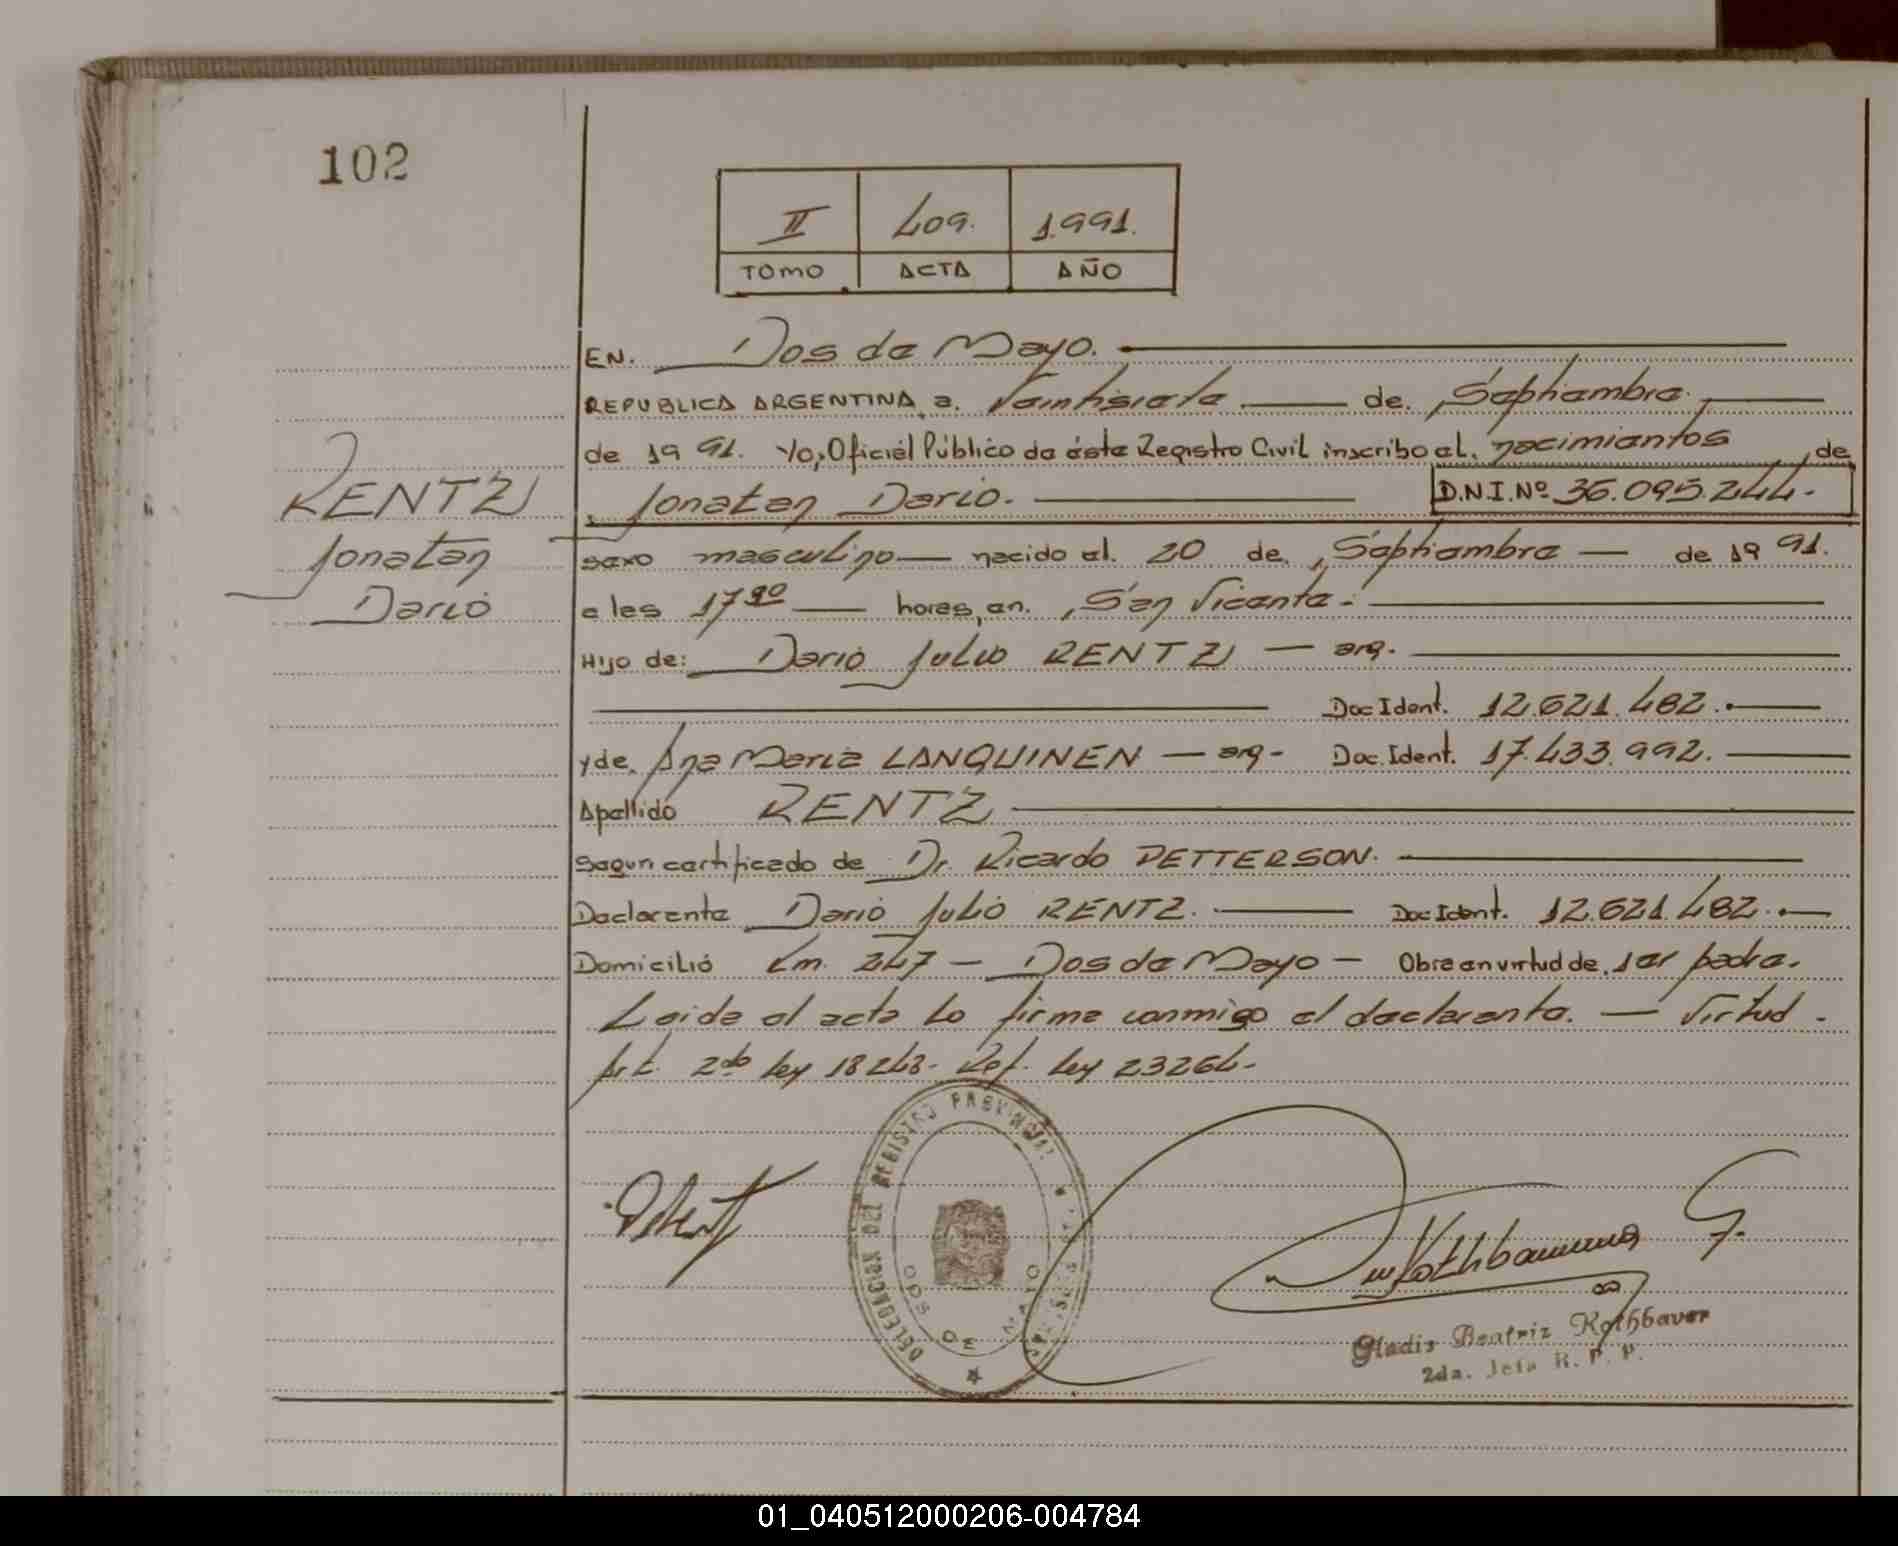 102
II 409. 1.991.
TOMO ACTA AÑO
EN. Dos de Mayo.
REPUBLICA ARGENTINA, a. Veintisiete de. Septiembre.
de 19 91. Yo, Oficial Público de éste Registro Civil inscribo el. nacimientos de
RENTZ Jonatan Dario. D.N.I. Nº 36.095.244.
Jonatan sexo masculino nacido el. 20 de. Septiembre de 19 91.
Dario a las 17 horas, en. San Vicente.
Hijo de: Dario Julio RENTZ — arg.
Doc Ident. 12.621.482.
y de. Ana Maria LANQUINEN — arg- Doc. Ident. 17.433.992.
Apellido RENTZ
Segun certificado de Dr. Ricardo PETTERSON.
Declarante Dario Julio RENTZ. Doc Ident. 12.621.482.
Domicilio Km. 247 — Dos de Mayo — Obra en virtud de. ser padre.
Leida el acta lo firma conmigo el declarante. — Virtud -
Art. 2do ley 18248- Ref. ley 23264-
DELEGACION DEL REGISTRO PROVINCIAL
DOS DE MAYO
Rothbauer G.
Gladis Beatriz Rothbaver
2da. Jefa R. P. P.
01_040512000206-004784